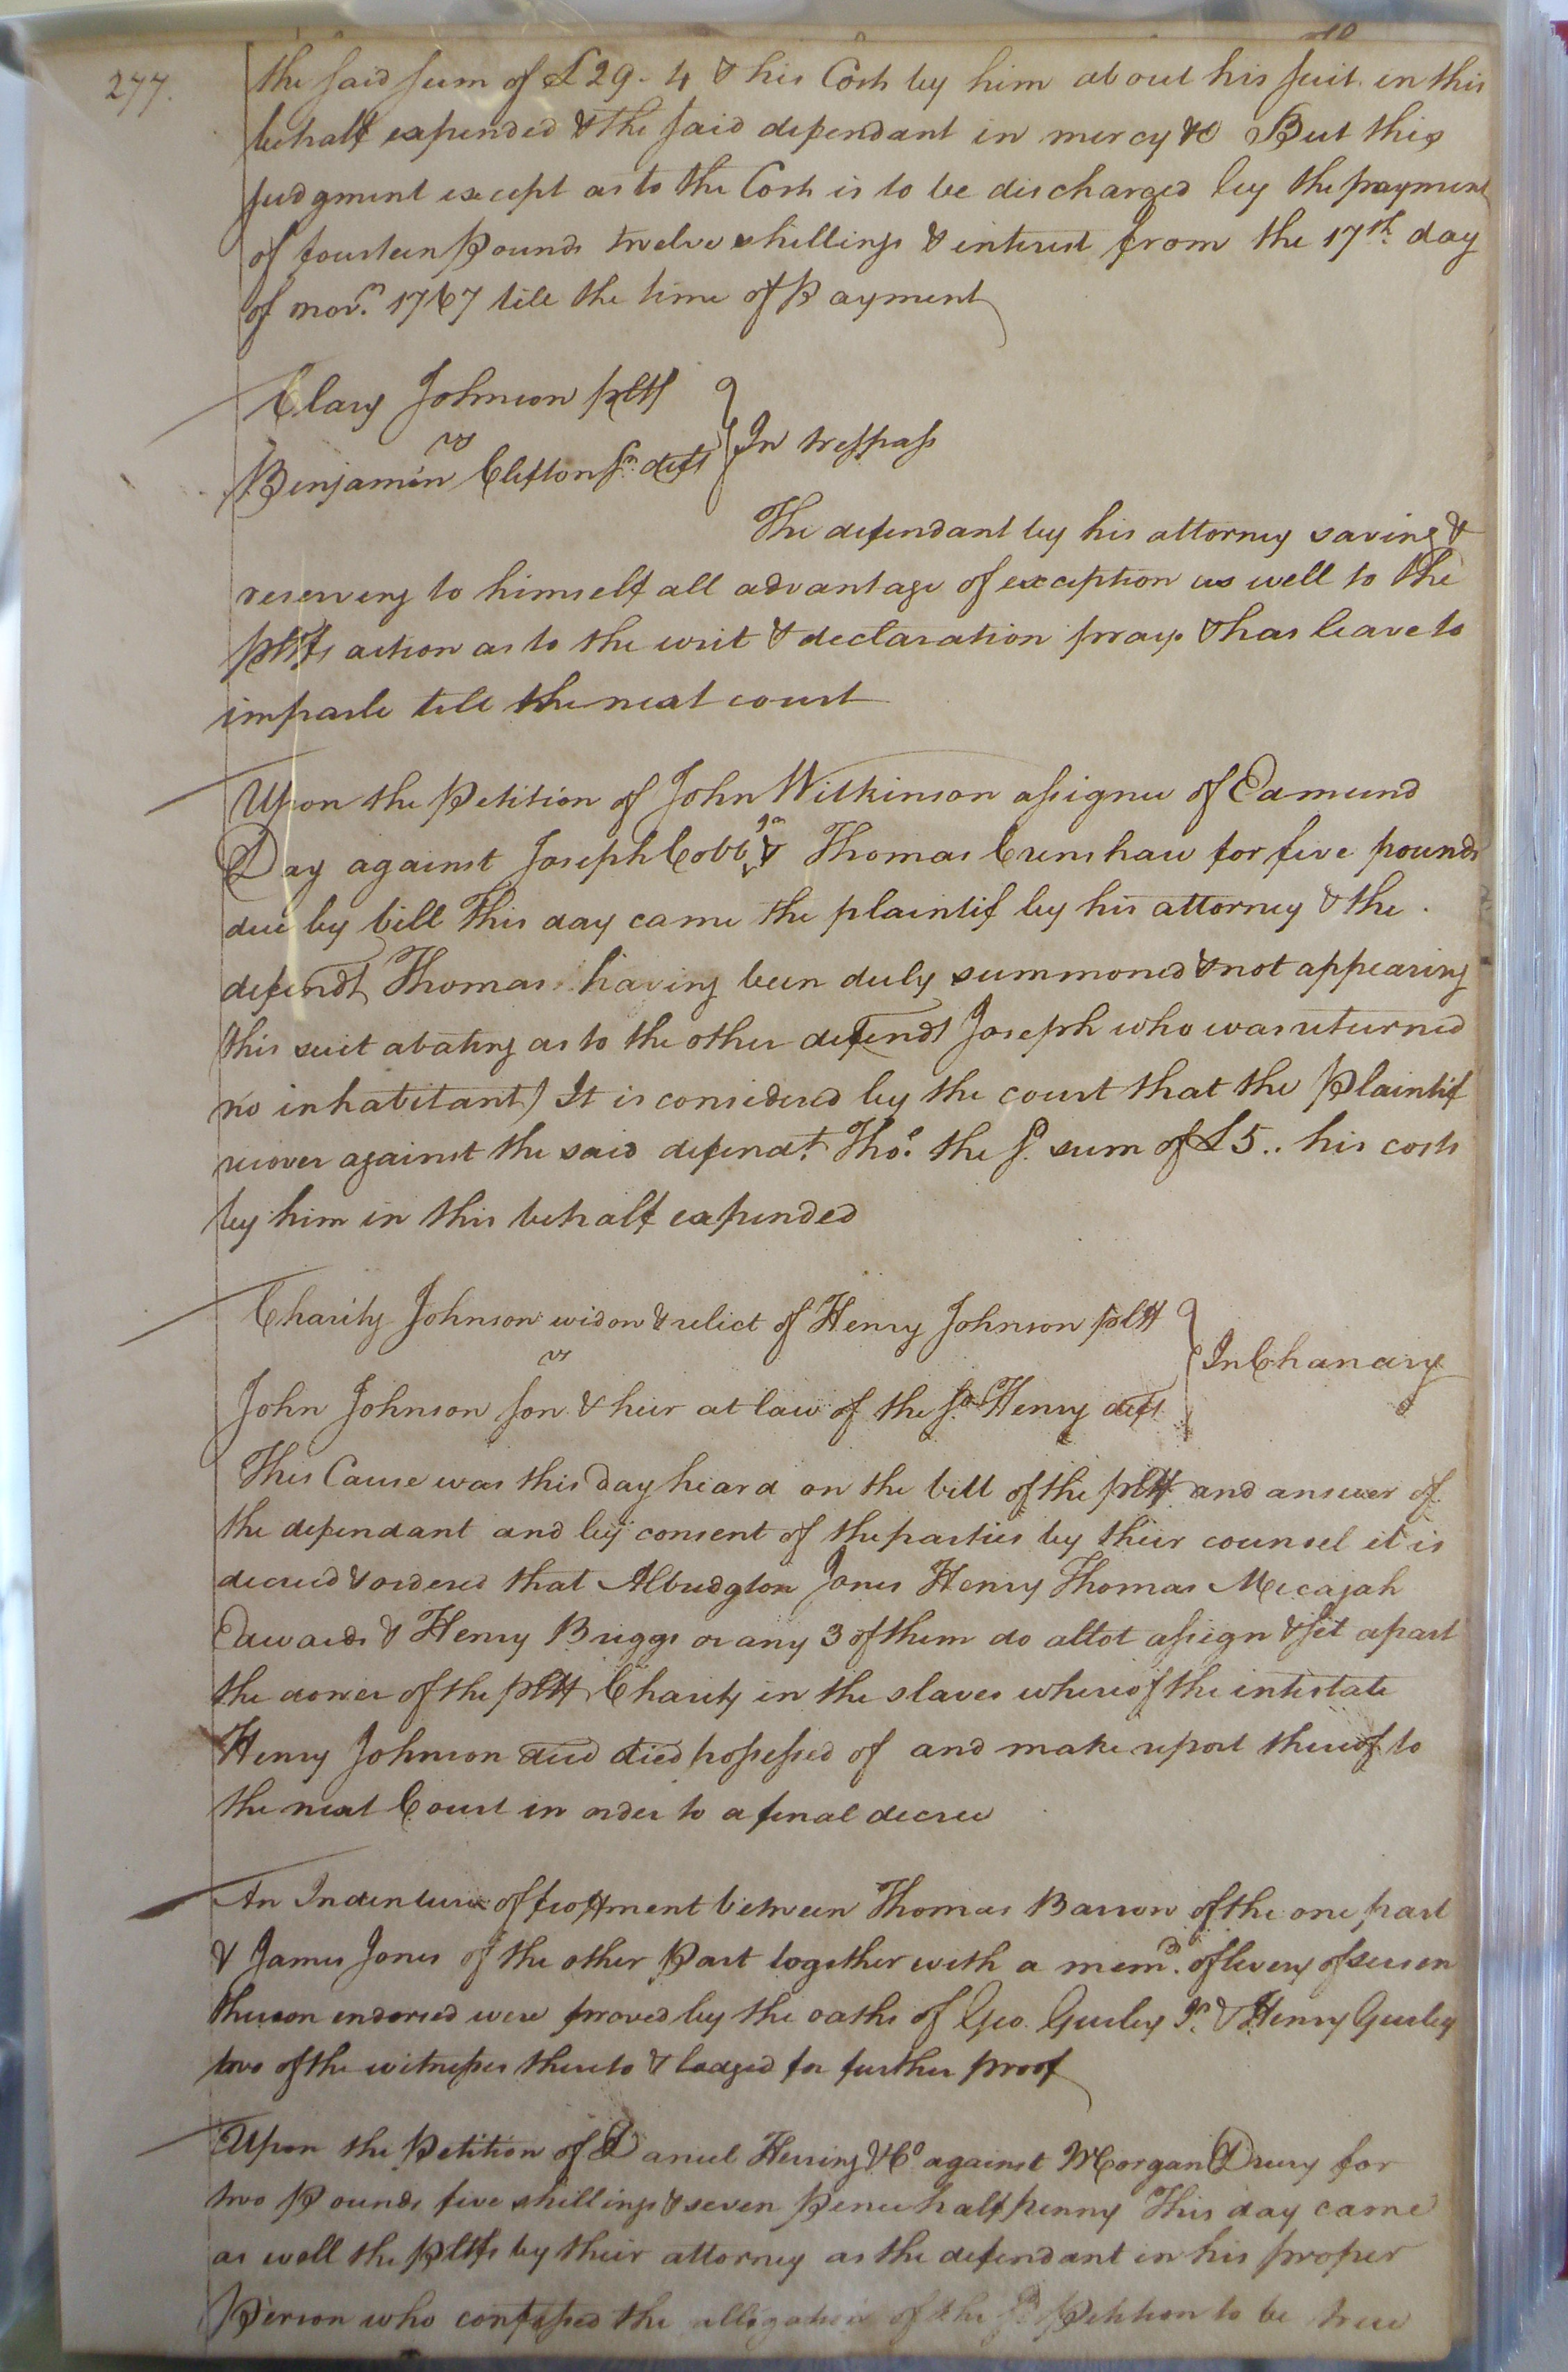 277.
the said sum of £29-4 & his Costs by him about his suit in this
behalf expended & the said defendant in mercy &c But this
judgment except as to the Costs is to be discharged by the payment
of fourteen Pounds twelve shillings & interest from the 17th. day
of nov.r 1767 till the time of Payment
Clary Johnson pltf
vs
Benjamin Clifton Sr. deft
In trespass
The defendant by his attorney saving &
reserving to himself all advantage of exception as well to the
pltfs action as to the writ & declaration prays & has leave to
imparle till the next court
Upon the Petition of John Wilkinson assignee of Edmund
Day against Joseph Cobb Jr & Thomas Crenshaw for five pounds
due by bill This day came the plaintif by his attorney & the
defendt Thomas having been duly summoned & not appearing
(this suit abating as to the other defendt Joseph who was returned
no inhabitant) It is considered by the court that the Plaintif
recover against the said defendt. Thos. the sd. sum of £5.. his costs
by him in this behalf expended
Charity Johnson widow & relict of Henry Johnson pltf
vs
John Johnson son & heir at law of the sd. Henry deft
In Chancery
This Cause was this Day heard on the bill of the pltf and answer of
the defendant and by consent of the parties by their counsel it is
decreed & ordered that Albridgton Jones Henry Thomas Micajah
Edwards & Henry Briggs or any 3 of them do allot assign & set apart
the dower of the pltf Charity in the slaves whereof the intestate
Henry Johnson died died possessed of and make report thereof to
the next Court in order to a final decree
An Indenture of feoffment between Thomas Barrow of the one part
& James Jones of the other Part together with a memd. of livery of seisen
thereon endorsed were proved by the oaths of Geo. Gurley Jr. & Henry Gurley
two of the witnesses thereto & lodged for further proof
Upon the Petition of Daniel Herring & Co against Morgan Drury for
two Pounds five shillings & seven Pence half penny This day came
as well the Pltfs by their attorney as the defendant in his proper
Person who confessed the allegation of the sd. Petition to be true